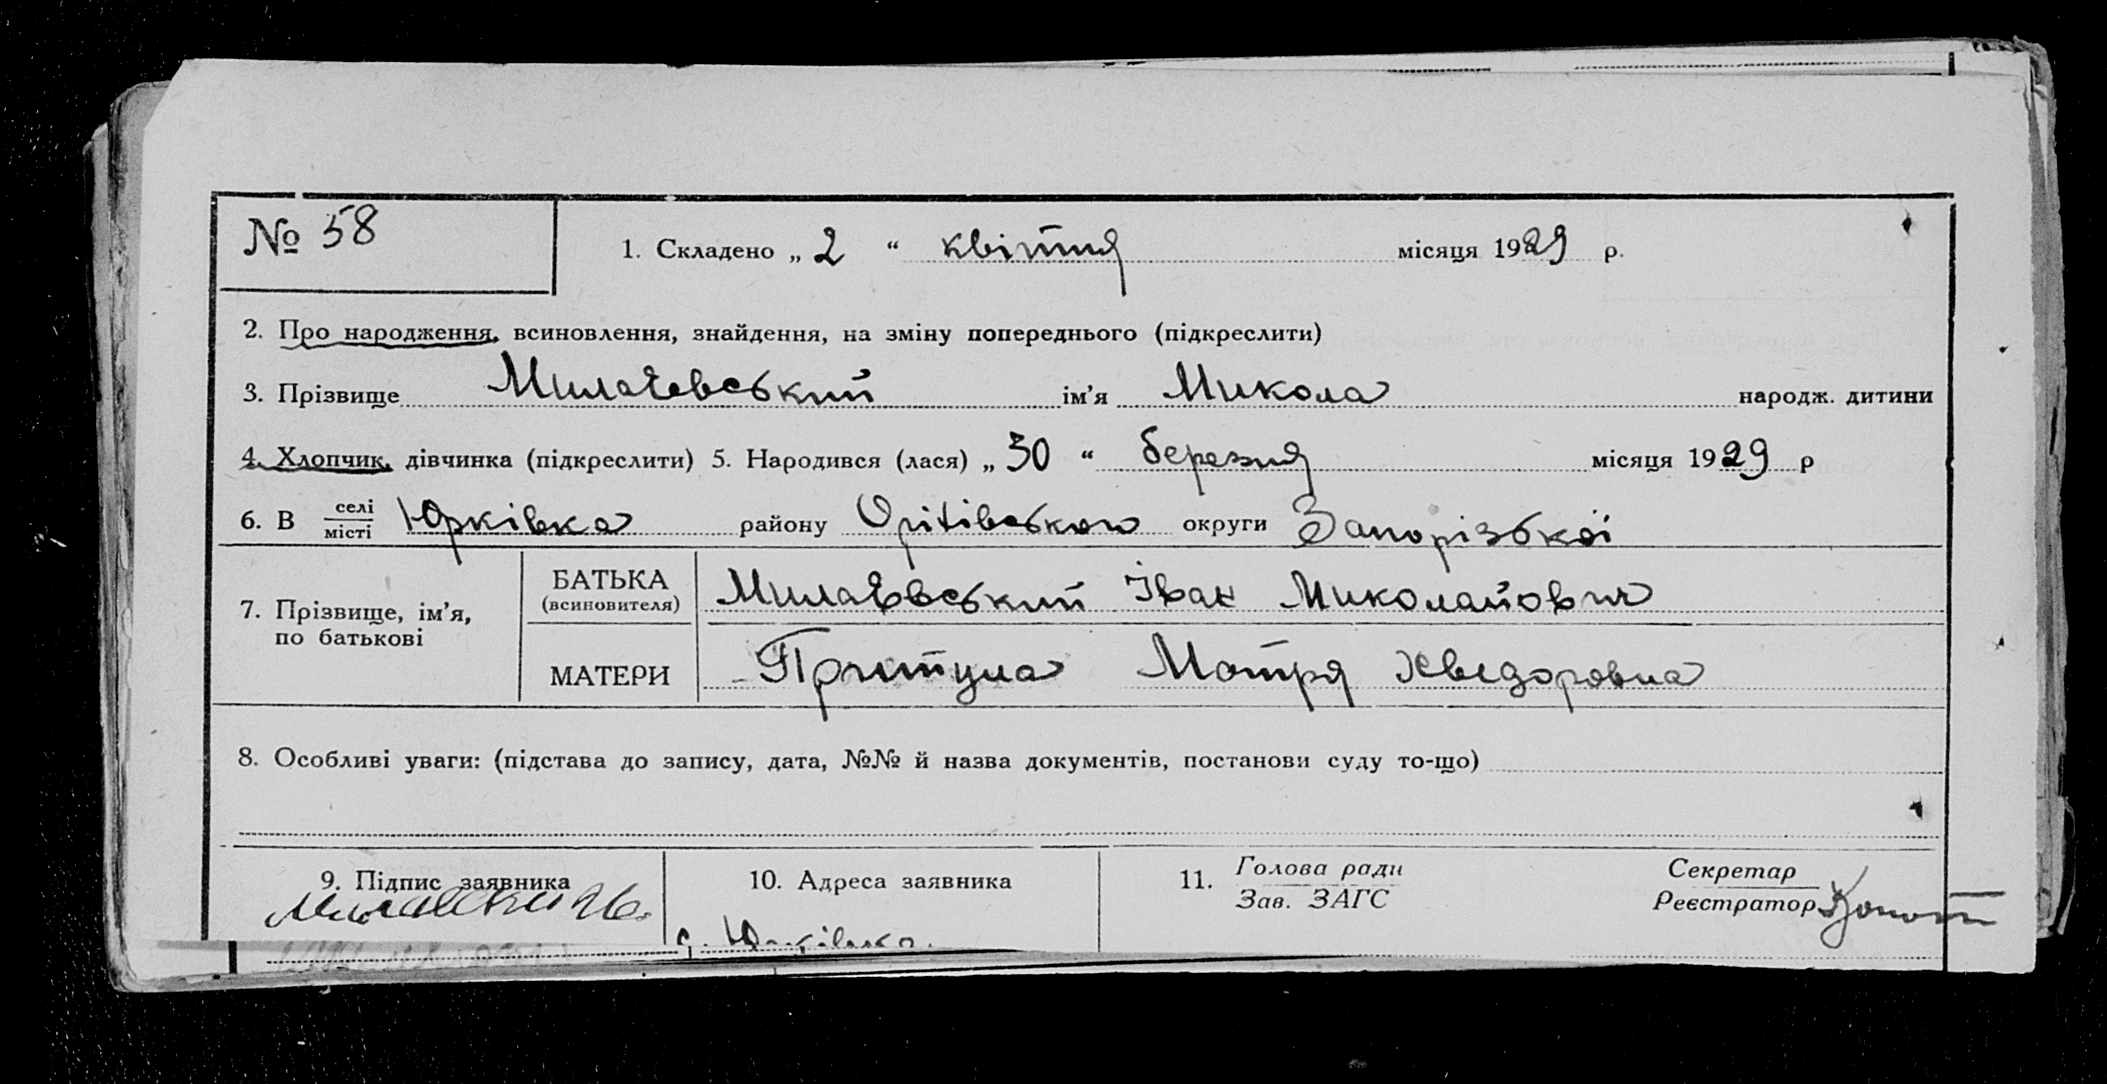 № 58
1. Складено „ 2 “ квітня місяця 1929 р.
2. Про народження, всиновлення, знайдення, на зміну попереднього (підкреслити)
3. Прізвище Милаєвський ім’я Микола народж. дитини
4. Хлопчик, дівчинка (підкреслити) 5. Народився (лася) „ 30 “ березня місяця 1929 р
6. В селі
місті Юрківка району Оріхівського округи Запорізької
7. Прізвище, ім’я,
по батькові
БАТЬКА
(всиновителя) Милаєвський Іван Миколайович
МАТЕРИ Притула Мотря Хведоровна
8. Особливі уваги: (підстава до запису, дата, №№ й назва документів, постанови суду то-що)
9. Підпис заявника
10. Адреса заявника
с. Юрківка.
11. Голова ради
Зав. ЗАГС
Секретар
Реєстратор